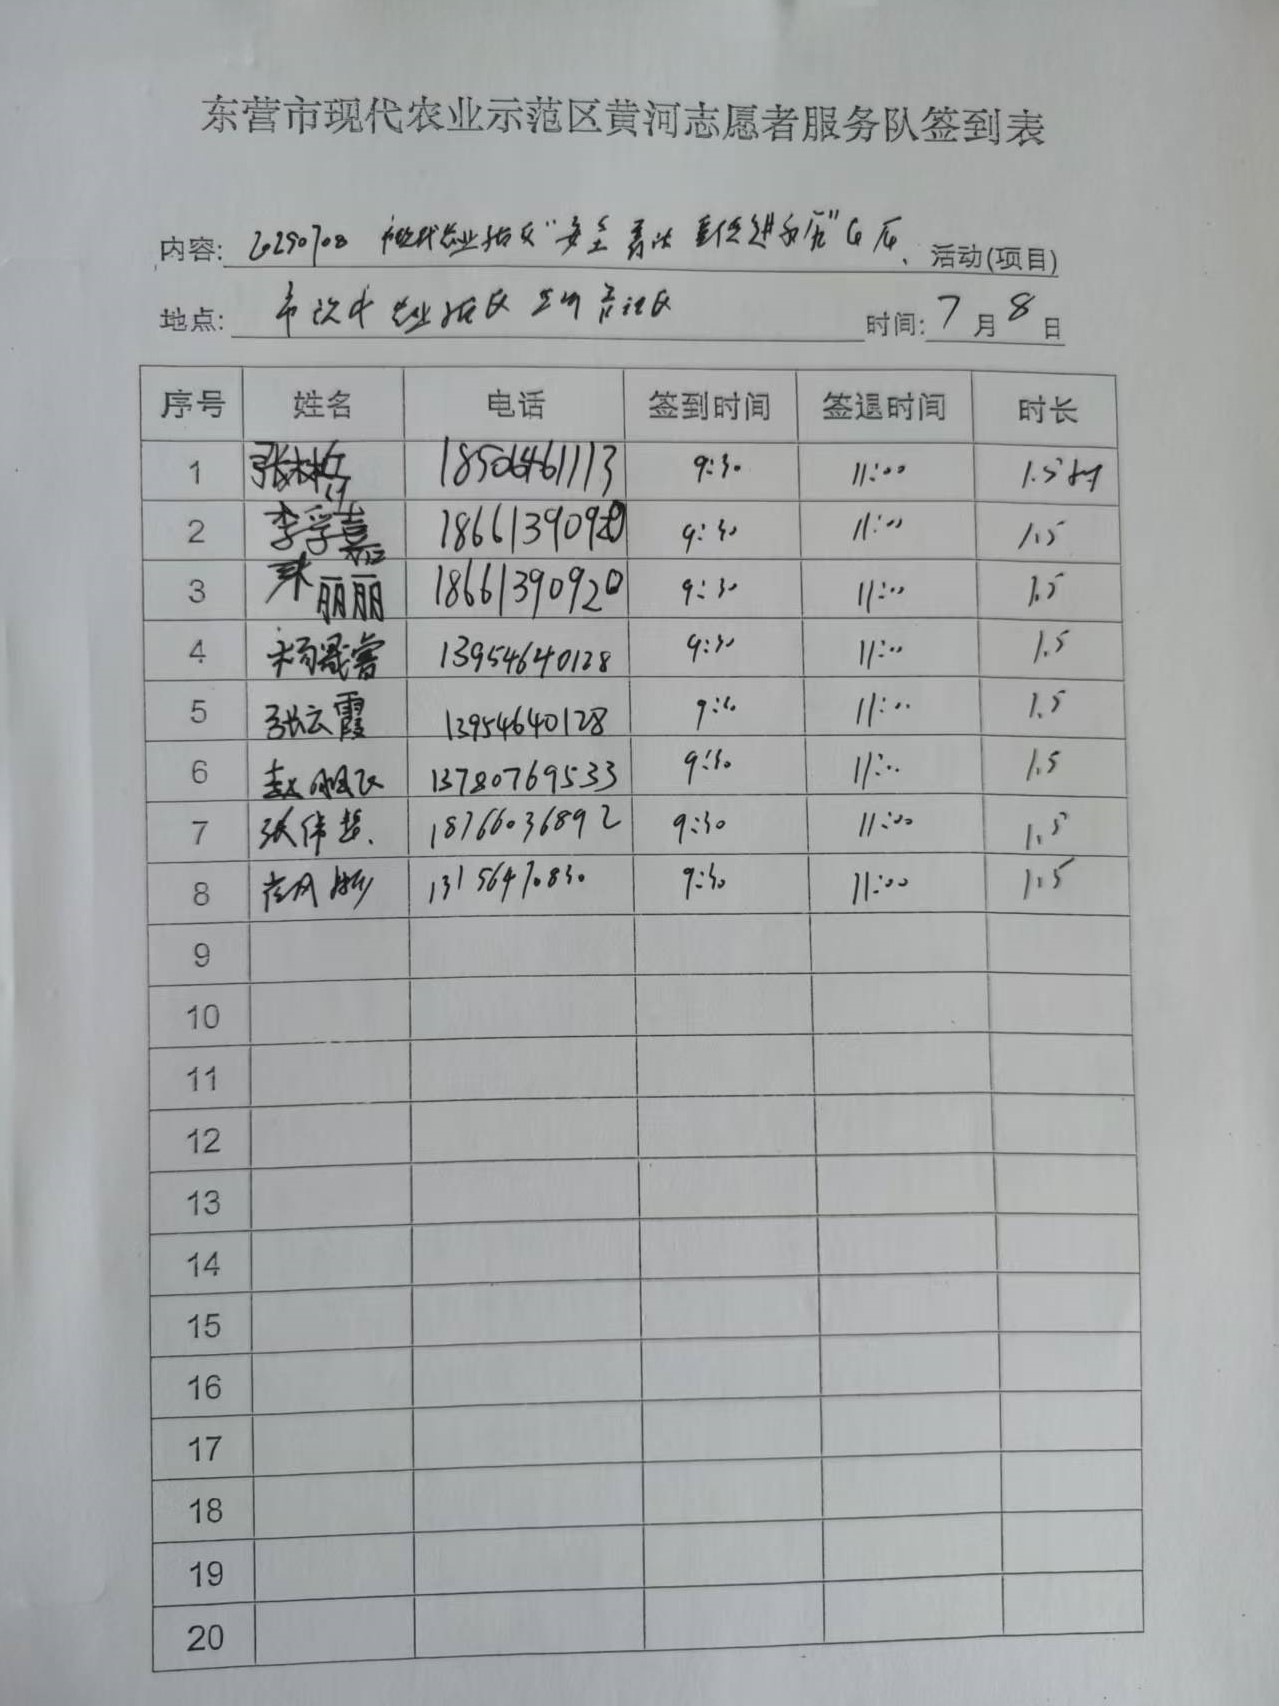 东营市现代农业示范区黄河志愿者服务队签到表
内容: 20250708 现代农业示范区"安全 普法 宣传进社区" 活动(项目)
地点: 市现代农业示范区 社区 时间: 7月8日
序号 姓名 电话 签到时间 签退时间 时长
1 张 18506461113 9:30 11:00 1.5时
2 李孚嘉 18661390920 9:30 11:00 1.5
3 丽丽 18661390920 9:30 11:00 1.5
4 杨晟睿 13954640128 9:30 11:00 1.5
5 张云霞 13954640128 9:30 11:00 1.5
6 赵 13780769533 9:30 11:00 1.5
7 张伟 18766036892 9:30 11:00 1.5
8 13156470830 9:30 11:00 1.5
9
10
11
12
13
14
15
16
17
18
19
20